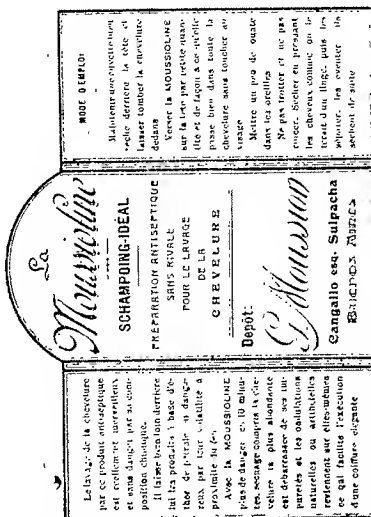 Le lavage de la chevelure
par ce produit antiseptique
est réellement merveilleux
et sans danger par sa com-
position chimique.
Il laisse bien loin derrière
lui les produits à base d'é-
ther de pétrole si dange-
reux par leur volatilité à
proximité du feu
Avec la MOUSSIOLINE
plus de danger en 10 minu-
tes, séchage compris la che-
velure la plus abondante
est débarrassée de ses im-
puretés et les ondulations
naturelles ou artificielles
reviennent sur elles-mêmes
ce qui facilite l'exécution
d'une coiffure élégante
La
Moussioline
SCHAMPOING-IDÉAL
PRÉPARATION ANTISEPTIQUE
SANS RIVALE
POUR LE LAVAGE
DE LA
CHEVELURE
Depôt:
G. Moussion
Cangallo esq. Suipacha
BUENOS AIRES
MODE D'EMPLOI
Maintenir une cuvette bien
sèche derrière la tête et
laisser tomber la chevelure
dedans
Verser la MOUSSIOLINE
sur la tête par petite quan-
tité et de façon à ce qu'elle
passe bien dans toute la
chevelure sans toucher au
visage
Mettre un peu de ouate
dans les oreilles
Ne pas frotter et ne pas
rincer. Sécher en pressant
les cheveux comme on le
ferait d'un linge, puis les
secouer, les éventer ils
sèchent de suite